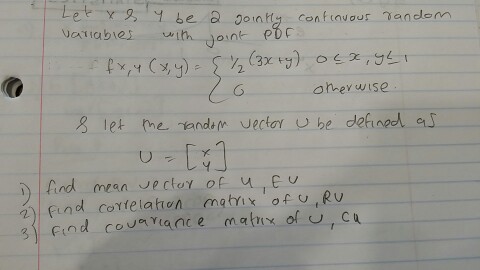 Let x & y be 2 jointly continuous random
variables with joint PDF
f x,y (x,y) = { 1/2 (3x+y) 0 ≤ x, y ≤ 1
0 otherwise.
& let the random vector U be defined as
U = [x
y]
1) find mean vector of U, EU
2) Find correlation matrix of U, RU
3) Find covariance matrix of U, Cu